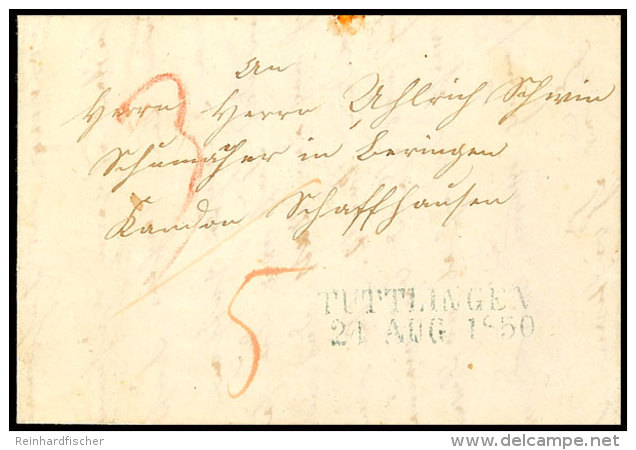 An
Herrn Herrn Uhlrich Schwin
Schumacher in Beringen
Kandon Schaffhausen
3
5
TUTTLINGEN
21 AUG 1850
Reinhardfischer
delcampe.net